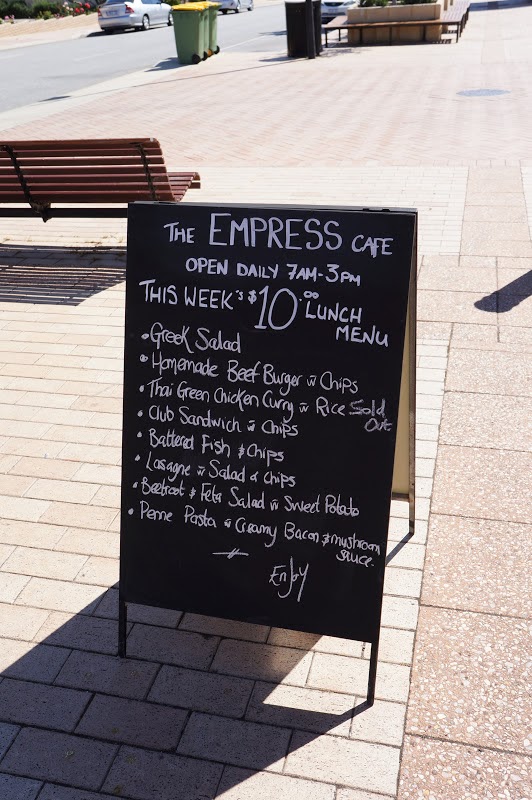 THE EMPRESS CAFE
OPEN DAILY 7AM-3PM
THIS WEEK'S $10.00 LUNCH
MENU
• Greek Salad
• Homemade Beef Burger w Chips
• Thai Green Chicken Curry w Rice Sold
Out
• Club Sandwich w Chips
• Battered Fish & Chips
• Lasagne w Salad & Chips
• Beetroot & Feta Salad w Sweet Potato
• Penne Pasta w Creamy Bacon & mushroom
sauce.
Enjoy